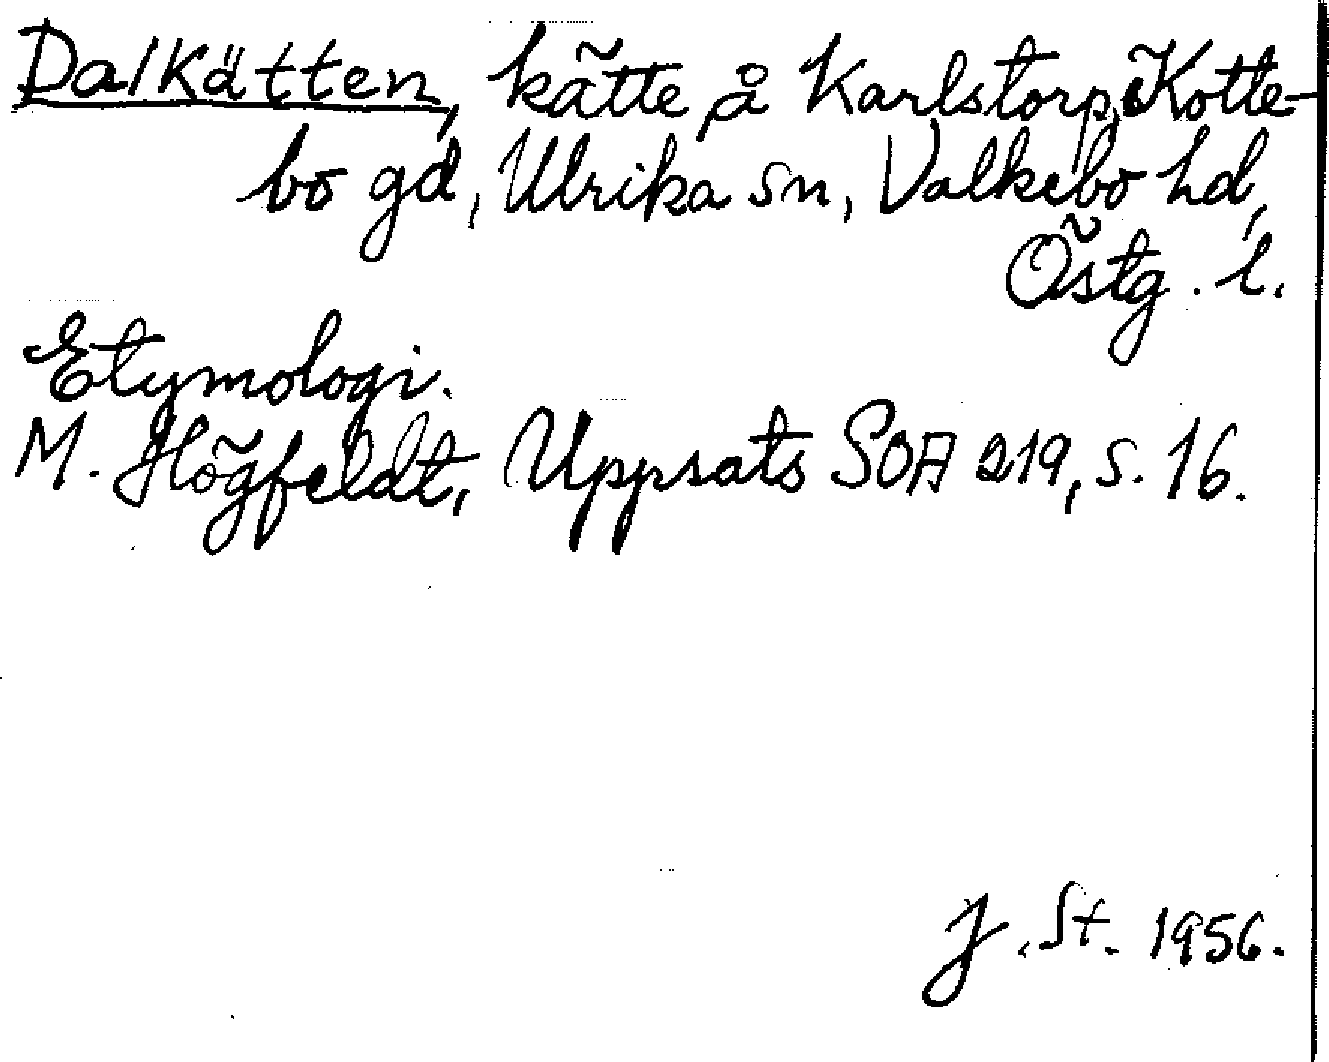 Dalkätten, kätte å Karlstorp, Kotte-
bo gd, Ulrika sn, Valkebo hd,
Östg. l.
Etymologi.
M. Högfeldt, Uppsats SOA 219, s. 16.
J. St. 1956.